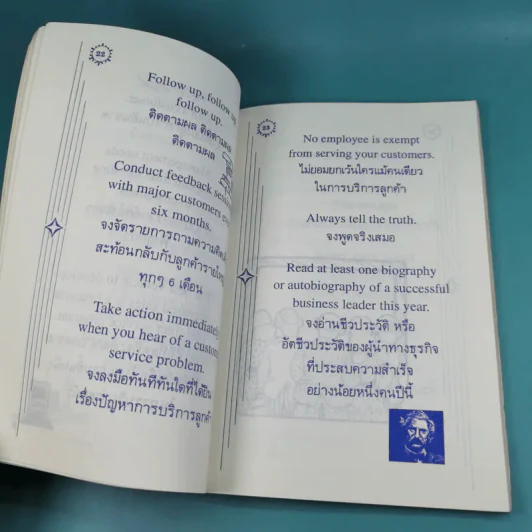 22
Follow up, follow up,
follow up.
ติดตามผล ติดตามผล
ติดตามผล
Conduct feedback
with major customers
six months.
จงจัดรายการถามความคิด
สะท้อนกลับกับลูกค้าราย
ทุกๆ 6 เดือน
Take action immediate
when you hear of a custom
service problem.
จงลงมือทันทีทันใดที่ได้ยิน
เรื่องปัญหาการบริการลูกค้า
23
No employee is exempt
from serving your customers.
ไม่ยอมยกเว้นใครแม้คนเดียว
ในการบริการลูกค้า
Always tell the truth.
จงพูดจริงเสมอ
Read at least one biography
or autobiography of a successful
business leader this year.
จงอ่านชีวประวัติ หรือ
อัตชีวประวัติของผู้นำทางธุรกิจ
ที่ประสบความสำเร็จ
อย่างน้อยหนึ่งคนปีนี้